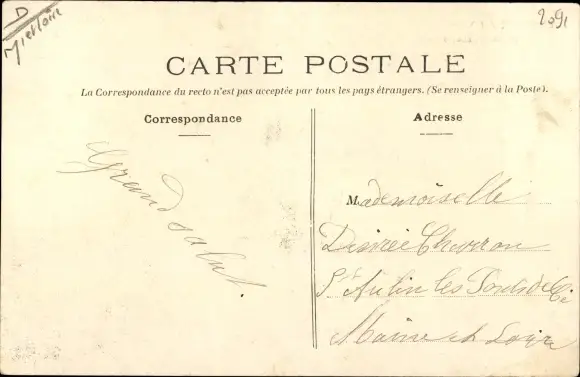 D
M et Loire
2091
CARTE POSTALE
La Correspondance du recto n'est pas acceptée par tous les pays étrangers. (Se renseigner à la Poste).
Correspondance
Adresse
Grand salut.
Mademoiselle
Désirée
St Aubin les Ponts de Cé
Maine et Loire